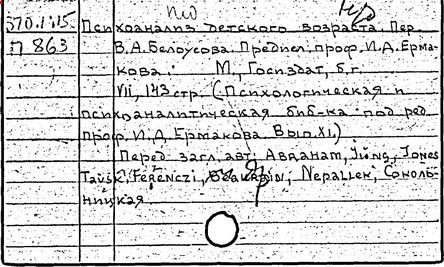 370.1:15. Психоанализ детского возраста. Пер.
П 863 В.А. Белоусова. Предисл. проф. И.Д. Ерма-
кова. М., Госиздат, б.г.
VII, 143 стр. (Психологическая и
психоаналитическая биб-ка под ред.
проф. И.Д. Ермакова. Вып. XI.)
Перед загл. авт.: Abraham, Jung, Jones
Tausk, Ferenczi, Nepallek, Соколь-
ницкая